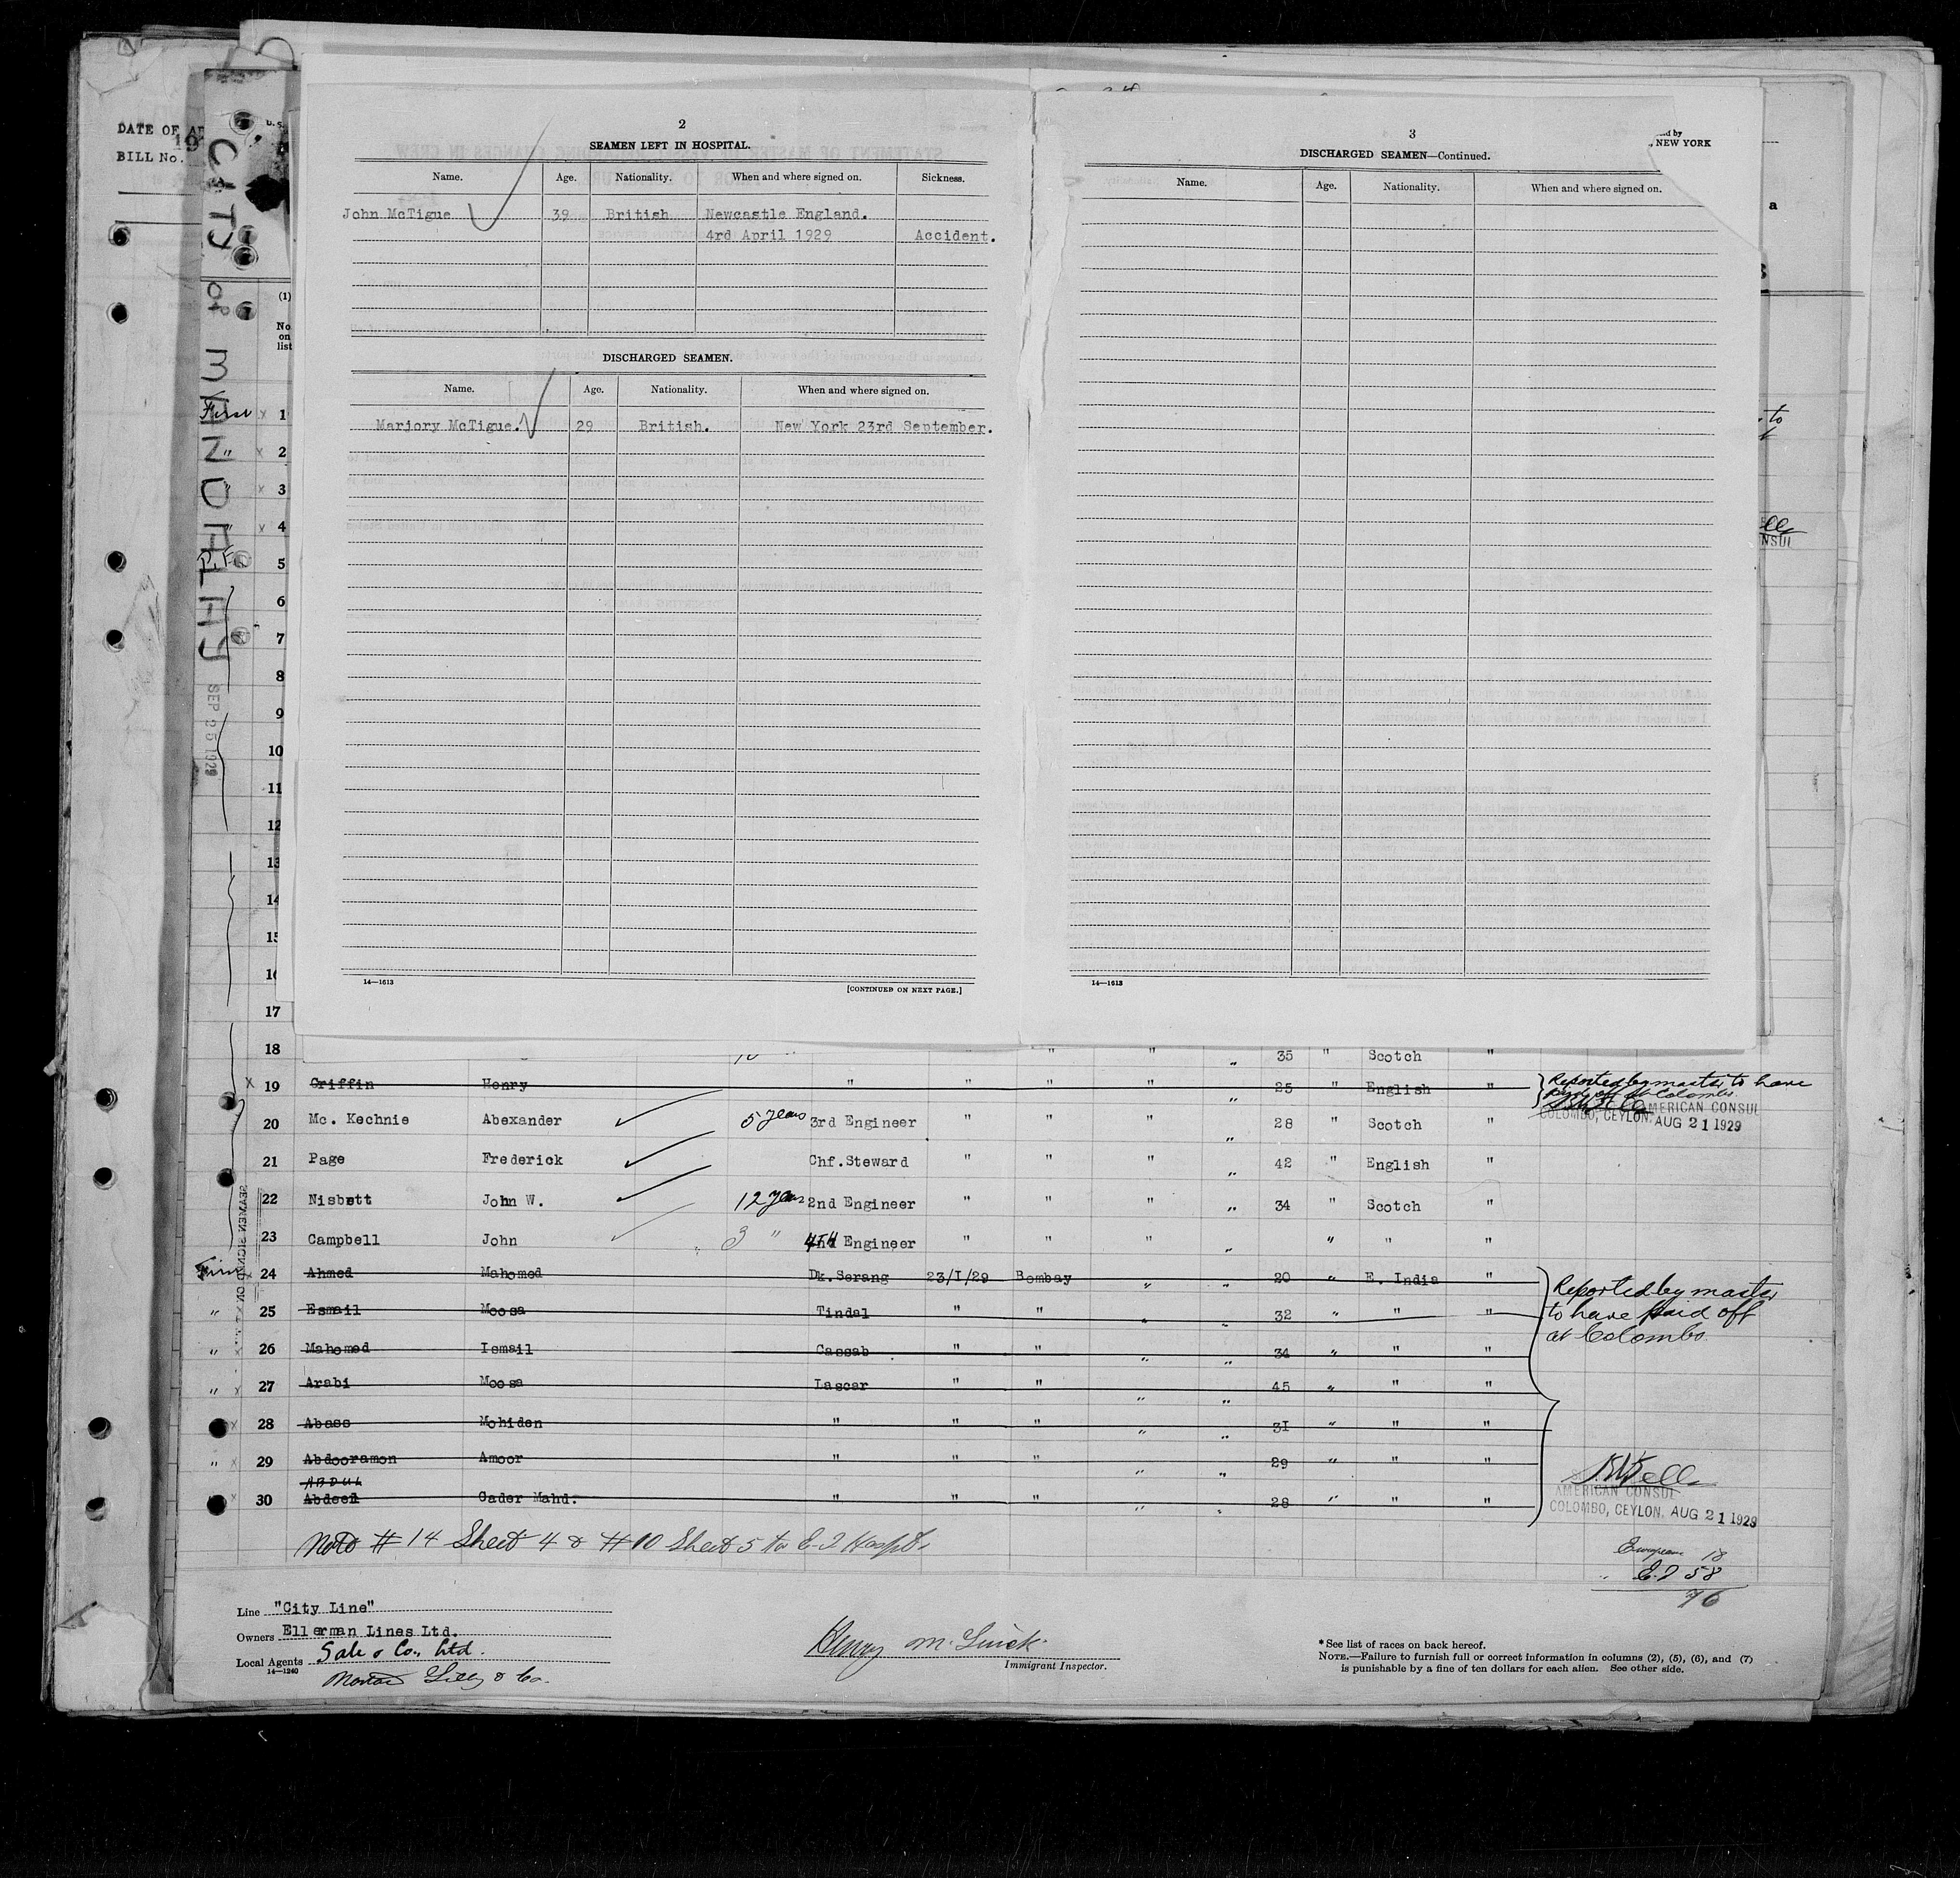 DATE OF
BILL No.
CITY OF MANDALAY
SEP 25 1929
2
SEAMEN LEFT IN HOSPITAL.
Name. Age. Nationality. When and where signed on. Sickness.
John McTigue 39 British Newcastle England.
4rd April 1929 Accident.
DISCHARGED SEAMEN.
Name. Age. Nationality. When and where signed on.
Marjory McTigue. 29 British. New York 23rd September.
14—1613
[CONTINUED ON NEXT PAGE.]
3
by
NEW YORK
DISCHARGED SEAMEN—Continued.
Name. Age. Nationality. When and where signed on.
14—1613
a
to
(1)
No.
on
list
First x 1
" x 2
" x 3
" x 4
5
6
7
8
9
10
11
12
13
14
15
16
17
18 " " " 35 " Scotch "
x 19 Griffin Henry " " " " 25 " English " Reported by master to have
paid off at Colombo.
AMERICAN CONSUL
COLOMBO, CEYLON. AUG 21 1929
20 Mc. Kechnie Abexander 5 years 3rd Engineer " " " " 28 " Scotch "
21 Page Frederick Chf. Steward " " " " 42 " English "
22 Nisbett John W. 12 years 2nd Engineer " " " " 34 " Scotch "
23 Campbell John 3 " 4th Engineer " " " " " " "
SEAMEN SIGNED ON
24 Ahmed Mahomed Dk. Serang 23/I/29 Bombay " " 20 " E. India "
" 25 Esmail Moosa Tindal " " " " 32 " " "
" 26 Mahomed Ismail Cassab " " " " 34 " " "
" x 27 Arabi Moosa Lascar " " " " 45 " " "
x 28 Abass Mohiden " " " " " 31 " " "
" x 29 Abdooramon Amoor " " " " " 29 " " "
ABDUL
x 30 Abdeen Cader Mahd. " " " " " 28 " " "
Reported by master
to have paid off
at Colombo.
AMERICAN CONSUL
COLOMBO, CEYLON. AUG 21 1929
Note # 14 Sheet 4 & #10 Sheet 5
European 18
E. I 58
76
Line "City Line"
Owners Ellerman Lines Ltd.
Local Agents Sale & Co., Ltd.
14—1240
Norton Lilly & Co.
Immigrant Inspector.
* See list of races on back hereof.
NOTE.—Failure to furnish full or correct information in columns (2), (5), (6), and (7)
is punishable by a fine of ten dollars for each alien. See other side.